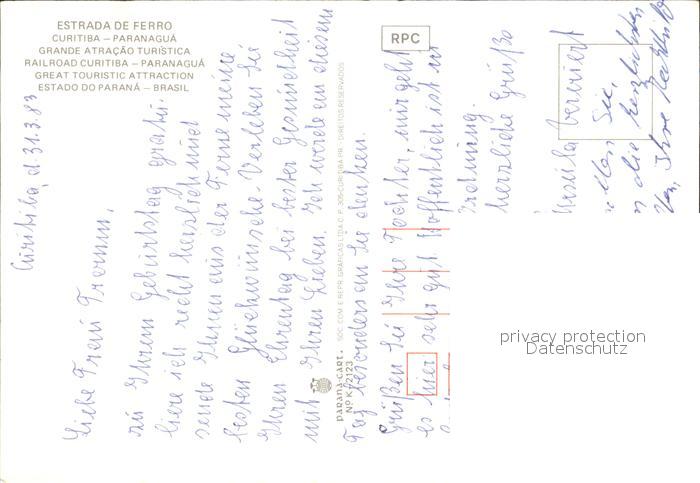 ESTRADA DE FERRO
CURITIBA – PARANAGUÁ
GRANDE ATRAÇÃO TURÍSTICA
RAILROAD CURITIBA – PARANAGUÁ
GREAT TOURISTIC ATTRACTION
ESTADO DO PARANÁ – BRASIL
RPC
Curitiba, d 31.3.83
Liebe Frau
zu Ihrem Geburtstag
liere ich recht herzlich und
sende Ihnen aus der Ferne meine
besten Glückwünsche. Verleben Sie
Ihren Ehrentag bei bester Gesundheit
mit Ihren Lieben. Ich werde an diesem
Tag besonders an Sie denken.
Grüßen Sie Ihre Tochter, mir geht
es hier sehr gut. Hoffentlich ist
Ordnung.
herzliche Grüße
Ursula
Sie,
die
Ihre
PARANÁ-CART.
Nº K 2123
SOC. COM. E REPR. GRÁFICAS LTDA C. P. 305 CURITIBA PR - DIREITOS RESERVADOS
privacy protection
Datenschutz